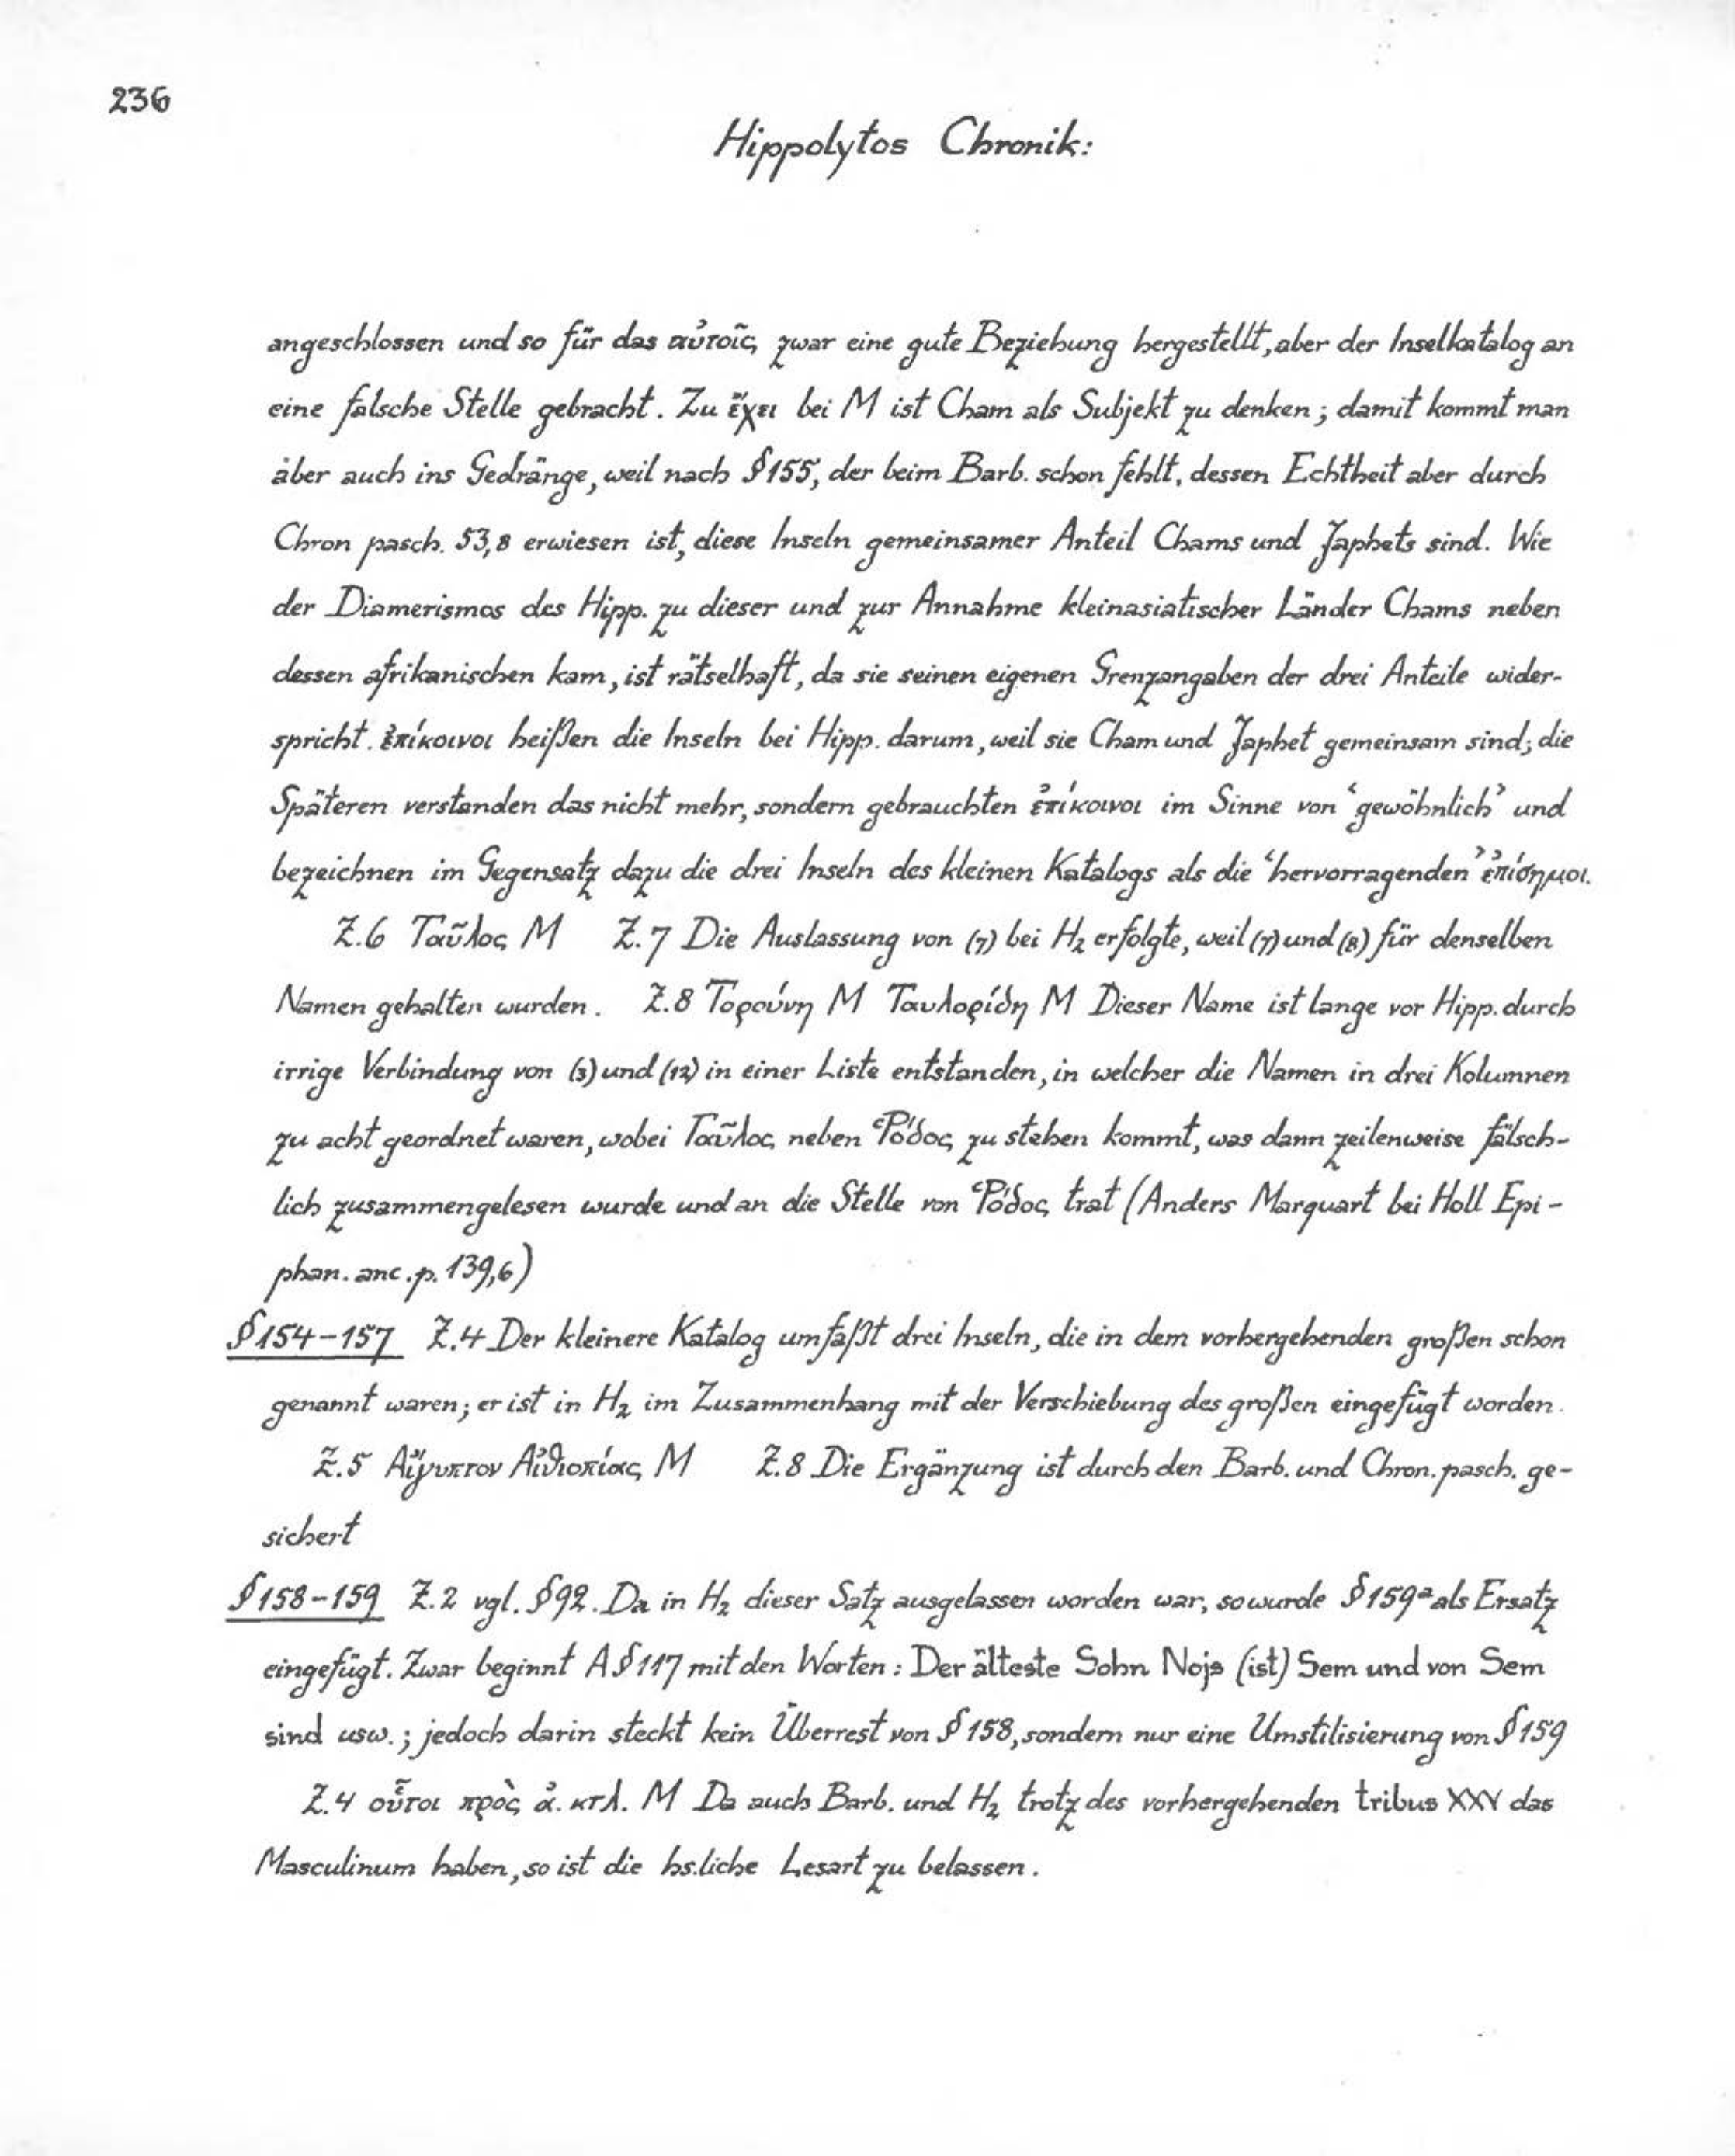 236
Hippolytos Chronik:
angeschlossen und so für das αὐτοῖς zwar eine gute Beziehung hergestellt, aber der Inselkatalog an
eine falsche Stelle gebracht. Zu ἔχει bei M ist Cham als Subjekt zu denken; damit kommt man
aber auch ins Gedränge, weil nach §155, der beim Barb. schon fehlt, dessen Echtheit aber durch
Chron pasch. 53,8 erwiesen ist, diese Inseln gemeinsamer Anteil Chams und Japhets sind. Wie
der Diamerismos des Hipp. zu dieser und zur Annahme kleinasiatischer Länder Chams neben
dessen afrikanischen kam, ist rätselhaft, da sie seinen eigenen Grenzangaben der drei Anteile wider-
spricht. ἐπίκοινοι heißen die Inseln bei Hipp. darum, weil sie Cham und Japhet gemeinsam sind; die
Späteren verstanden das nicht mehr, sondern gebrauchten ἐπίκοινοι im Sinne von ‘gewöhnlich’ und
bezeichnen im Gegensatz dazu die drei Inseln des kleinen Katalogs als die ‘hervorragenden’ ἐπίσημοι.
Z.6 Ταῦλος M Z.7 Die Auslassung von (7) bei H₂ erfolgte, weil (7) und (8) für denselben
Namen gehalten wurden. Z.8 Τορούνη M Ταυλορίδη M Dieser Name ist lange vor Hipp. durch
irrige Verbindung von (3) und (12) in einer Liste entstanden, in welcher die Namen in drei Kolumnen
zu acht geordnet waren, wobei Γαῦλος neben Ῥόδος zu stehen kommt, was dann zeilenweise fälsch-
lich zusammengelesen wurde und an die Stelle von Ῥόδος trat (Anders Marquart bei Holl Epi-
phan. anc. p. 139,6)
§154-157 Z.4 Der kleinere Katalog umfaßt drei Inseln, die in dem vorhergehenden großen schon
genannt waren; er ist in H₂ im Zusammenhang mit der Verschiebung des großen eingefügt worden.
Z.5 Αἴγυπτον Αἰθιοπίας M Z.8 Die Ergänzung ist durch den Barb. und Chron. pasch. ge-
sichert
§158-159 Z.2 vgl. §92. Da in H₂ dieser Satz ausgelassen worden war, so wurde §159ᵃ als Ersatz
eingefügt. Zwar beginnt A §117 mit den Worten: Der älteste Sohn Nojs (ist) Sem und von Sem
sind usw.; jedoch darin steckt kein Überrest von §158, sondern nur eine Umstilisierung von §159
Z.4 οὗτοι πρὸς ἀ. κτλ. M Da auch Barb. und H₂ trotz des vorhergehenden tribus XXV das
Masculinum haben, so ist die hs.liche Lesart zu belassen.